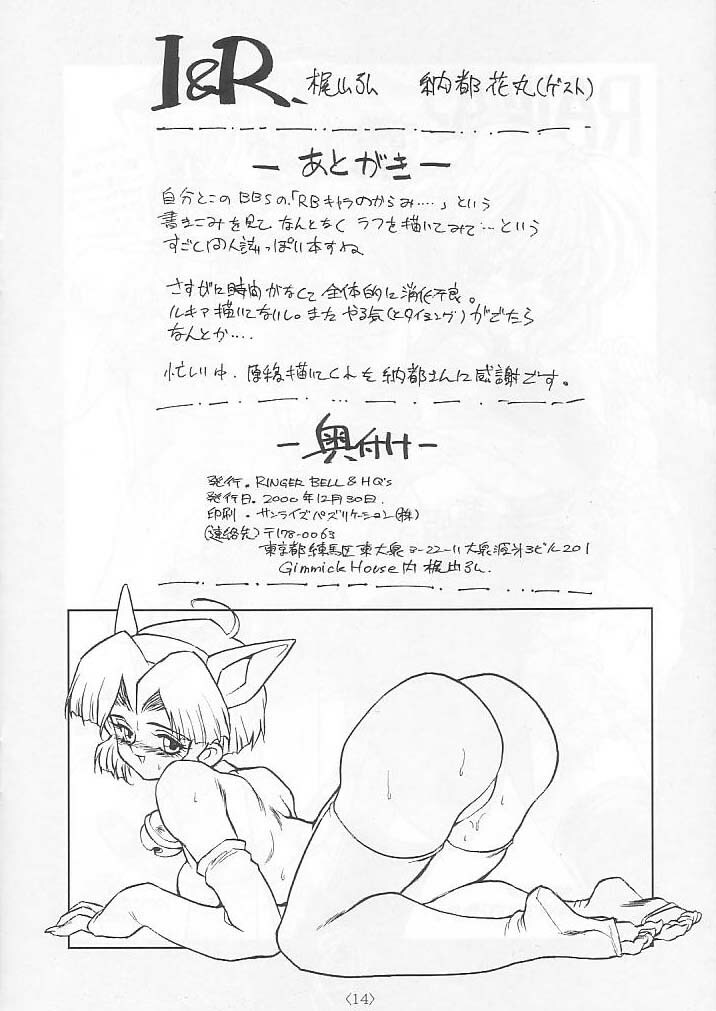 I&R、 梶山弘 納都花丸(ゲスト)
ーあとがきー
自分とこのBBSの、「RBキャラのからみ....」という
書きこみを見て なんとなく ラフを描いてみて...という
すごく同人誌っぽい本すね
さすがに時間がなくて 全体的に消化不良。
ルキア描いてないし。また やる気(とタイミング)がでたら
なんとか....
忙しい中、原稿描いてくれた納都さんに感謝です。
ー奥付けー
発行。RINGER BELL & HQ's
発行日。2000年12月30日.
印刷・サンライズパブリケーション(株)
(連絡先)〒178-0063
東京都練馬区東大泉3-22-11 大泉 3ビル201
Gimmick House内 梶山弘.
〈14〉